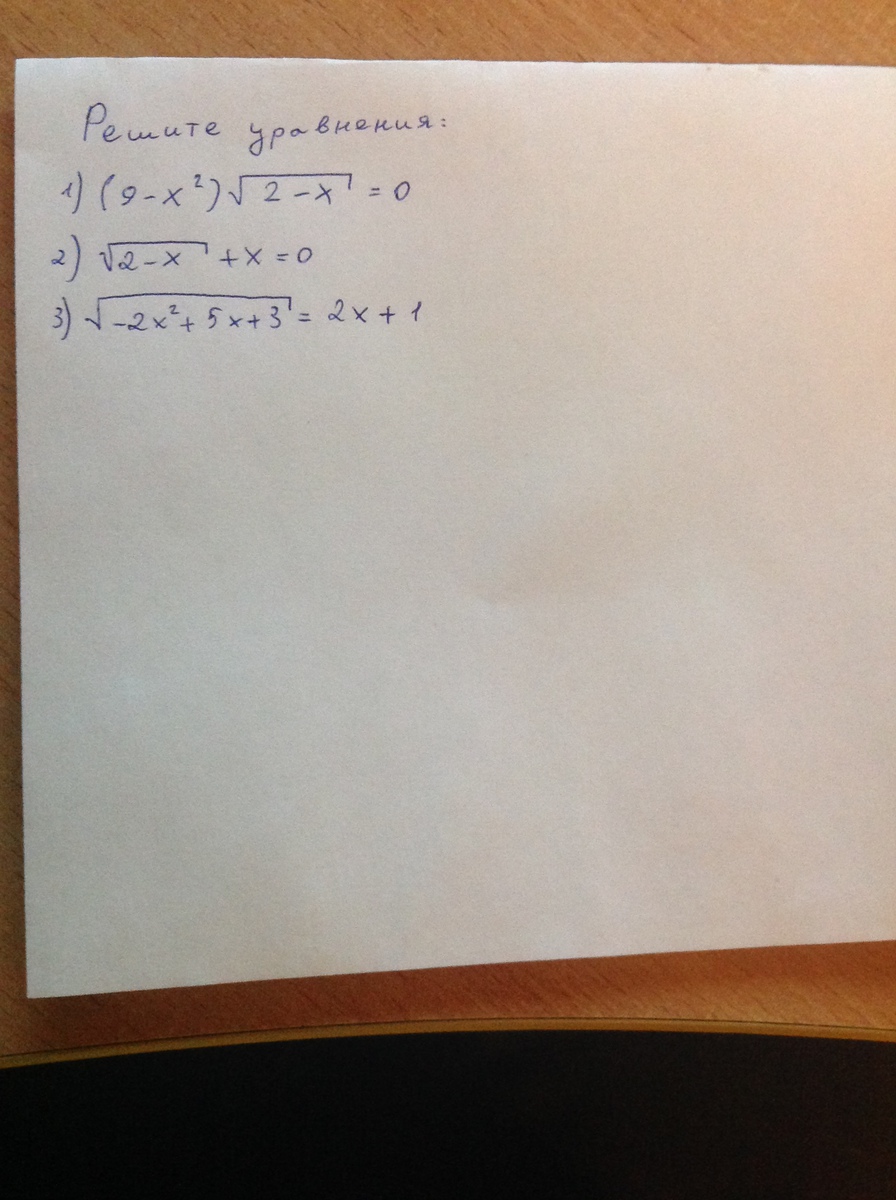 Решите уравнения:
1) (9-x²)√2-x = 0
2) √2-x + x = 0
3) √-2x²+5x+3 = 2x+1